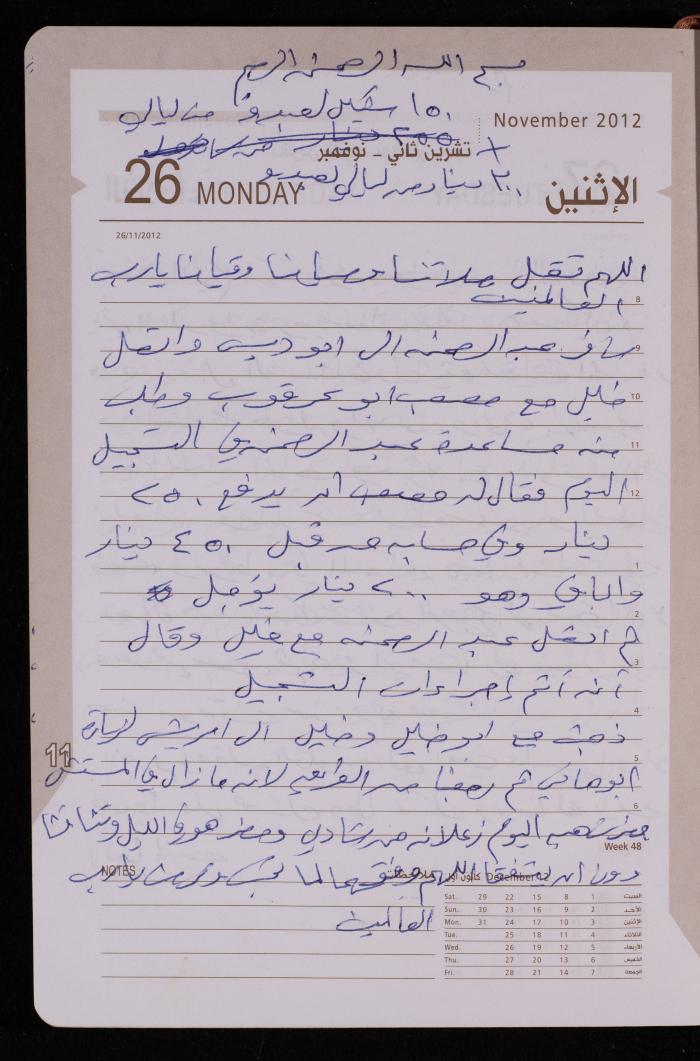 بسم الله الرحمن الرحيم
١٥٠ شيكل لعبدو من ليالي
November 2012
+
٢٠٠ دينار من
تشرين ثاني – نوفمبر
٢٠٠ دينار من ليالي لعبدو
26 MONDAY
الإثنين
26/11/2012
اللهم تقبل صلاتنا وصيامنا وقيامنا يارب
العالمين
8
سافر عبد الرحمن الى ابو ديس واتصل
9
خليل مع مصعب ابو عرقوب وطلب
10
منه مساعدة عبد الرحمن في التسجيل
11
اليوم فقال له مصعب ان يدفع ٢٥٠
12
دينار وفي حسابه من قبل ٤٥٠ دينار
1
والباقي وهو ٢٠٠ دينار يؤجل
2
ثم اتصل عبد الرحمن مع خليل وقال
3
أنه أتم إجراءات التسجيل
4
ذهبت مع ابو خليل وخليل الى امريش لزيارة
5
11
ابو هاني ثم رجعنا من الطريق لانه ما زال في المستشفى
6
حضر شعيب اليوم زعلان من شادي وحضر هو في الليل وتناقشا
Week 48
دون ان يتفقا اللهم وفقهما لما تحب وترضى يا رب
NOTES
ملاحظات
December 12 كانون أول
العالمين
Sat. 29 22 15 8 1 السبت
Sun. 30 23 16 9 2 الأحد
Mon. 31 24 17 10 3 الإثنين
Tue. 25 18 11 4 الثلاثاء
Wed. 26 19 12 5 الأربعاء
Thu. 27 20 13 6 الخميس
Fri. 28 21 14 7 الجمعة